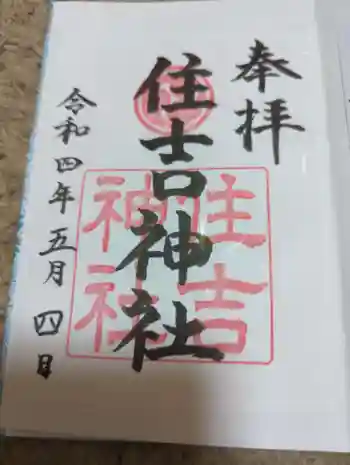 奉拝
住吉神社
住吉
神社
令和四年五月四日